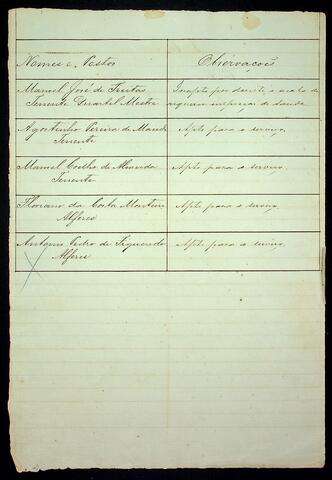 Nomes e Postos
Observações
Manoel José de Freitas
Tenente Quartel Mestre
Incapto por
de saude
Agostinho Pereira de
Tenente
Apto para o serviço,
Manoel Coelho de Almeida
Tenente
Apto para o serviço.
Floriano da Costa Monteiro
Alferes
Apto para o serviço,
Antonio Pedro de Figueredo
Alferes
Apto para o serviço,